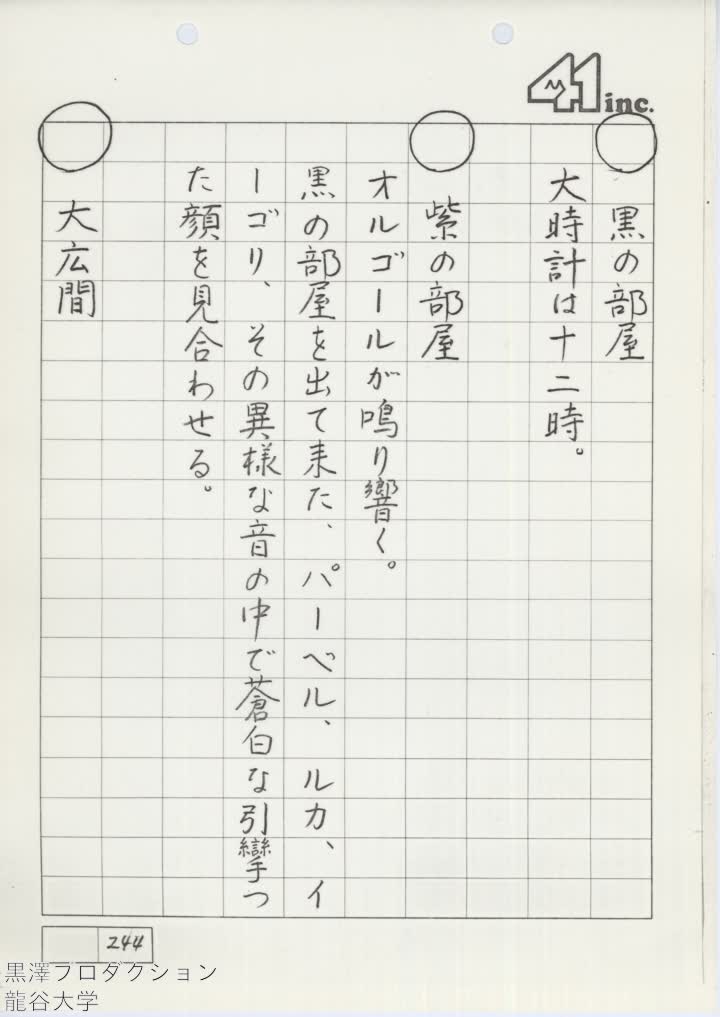 41 inc.
○ 黒の部屋
大時計は十二時。
○ 紫の部屋
オルゴールが鳴り響く。
黒の部屋を出て来た、パーベル、ルカ、イ
ーゴリ、その異様な音の中で蒼白な引攣つ
た顔を見合わせる。
○ 大広間
244
黒澤プロダクション
龍谷大学